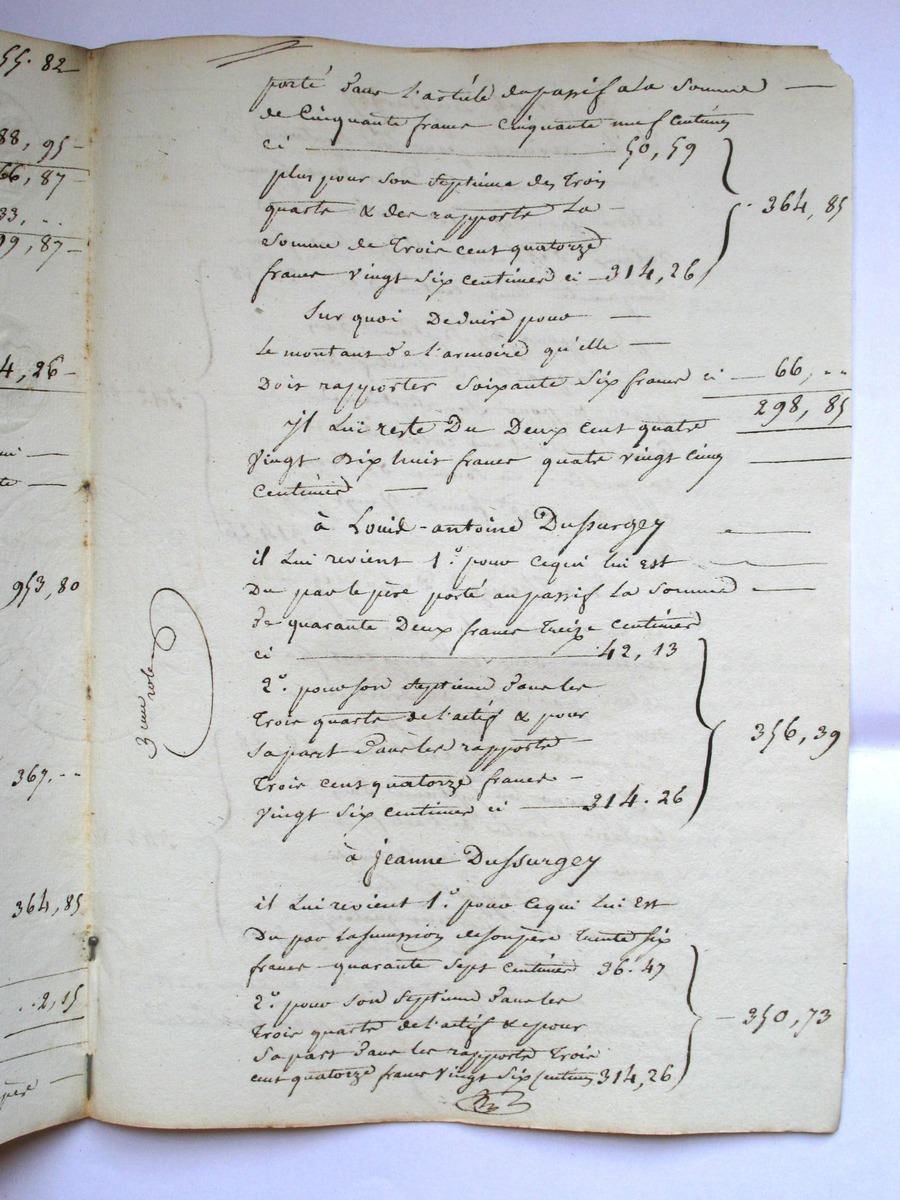 55. 82
88, 95
66, 87
33, ..
99, 87
4, 26
953, 80
367. ..
364, 85
.. 2, 15
père
porté dans l'article du passif a la somme
de Cinquante francs cinquante neuf Centimes
ci 50, 59
plus pour son septieme des trois
quarts & des rapports la
somme de trois cent quatorze
francs vingt six centimes ci 314, 26
364, 85
Sur quoi Deduire pour
le montant de l'armoire qu'elle
Doit rapporter soixante six francs ci 66, ..
298, 85
Il lui reste Du Deux cent quatre
vingt dix huit francs quatre vingt cinq
centimes
à Louis-antoine Dussurgey
il lui revient 1º. pour ce qui lui est
Du par le père porté au passif la somme
de quarante Deux francs treize centimes
ci 42, 13
2º. pour son septieme dans les
trois quarts de l'actif & pour
sa part dans les rapports
trois cent quatorze francs
vingt six centimes ci 314. 26
356, 39
3me role
à jeanne Dussurgey
il lui revient 1º. pour ce qui lui est
Du par la succession de son père trente six
francs quarante sept centimes 36. 47
2º. pour son septieme dans les
trois quarts de l'actif & pour
sa part dans les rapports trois
cent quatorze francs vingt six centimes 314, 26
350, 73